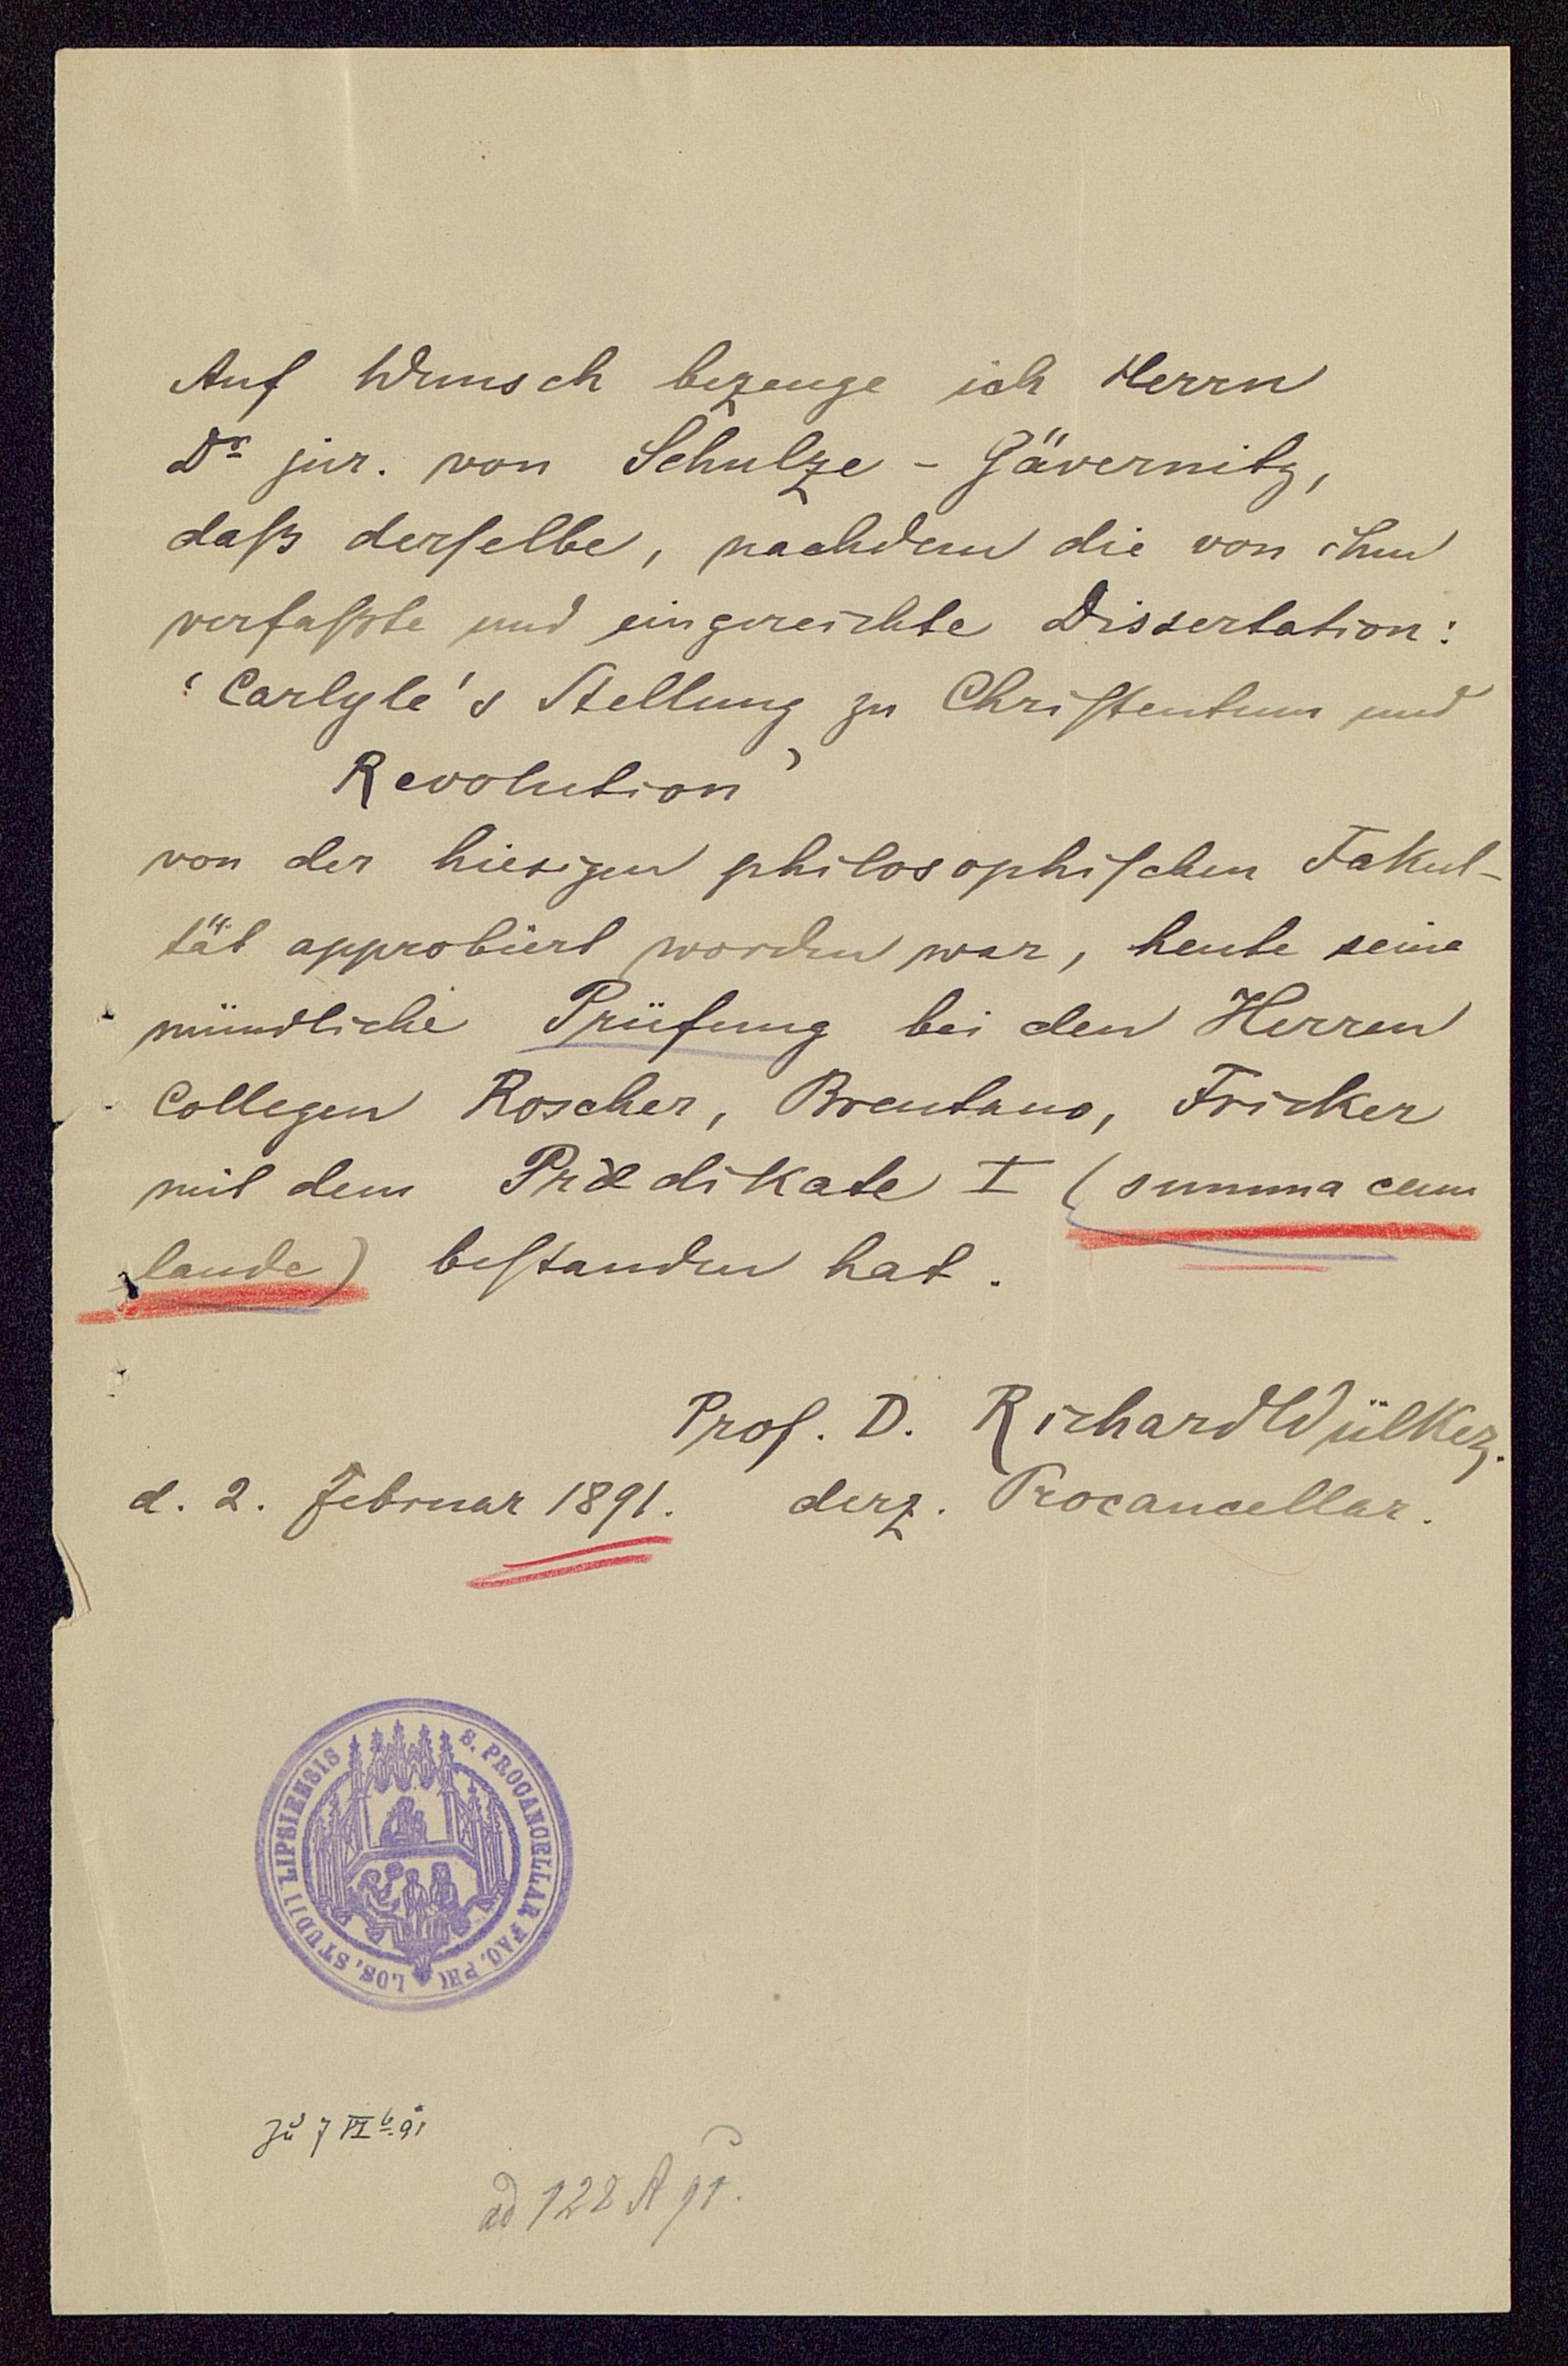 Auf Wunsch bezeuge ich Herrn
Dr jur. von Schulze-Gävernitz,
daß derselbe, nachdem die von ihm
verfaßte und eingereichte Dissertation:
‘Carlyle's Stellung zu Christentum und
Revolution’
von der hiesigen philosophischen Fakul-
tät approbiert worden war, heute seine
mündliche Prüfung bei den Herren
Collegen Roscher, Brentano, Fricker
mit dem Prädikate I (summa cum
laude) bestanden hat.
Prof. D. Richard Wülker.
d. 2. Februar 1891. derz. Procancellar.
S. PROCANCELLAR FAC. PHILOS. STUDII LIPSIENSIS
zu 7 VI b. 91
ad 128 A 91.